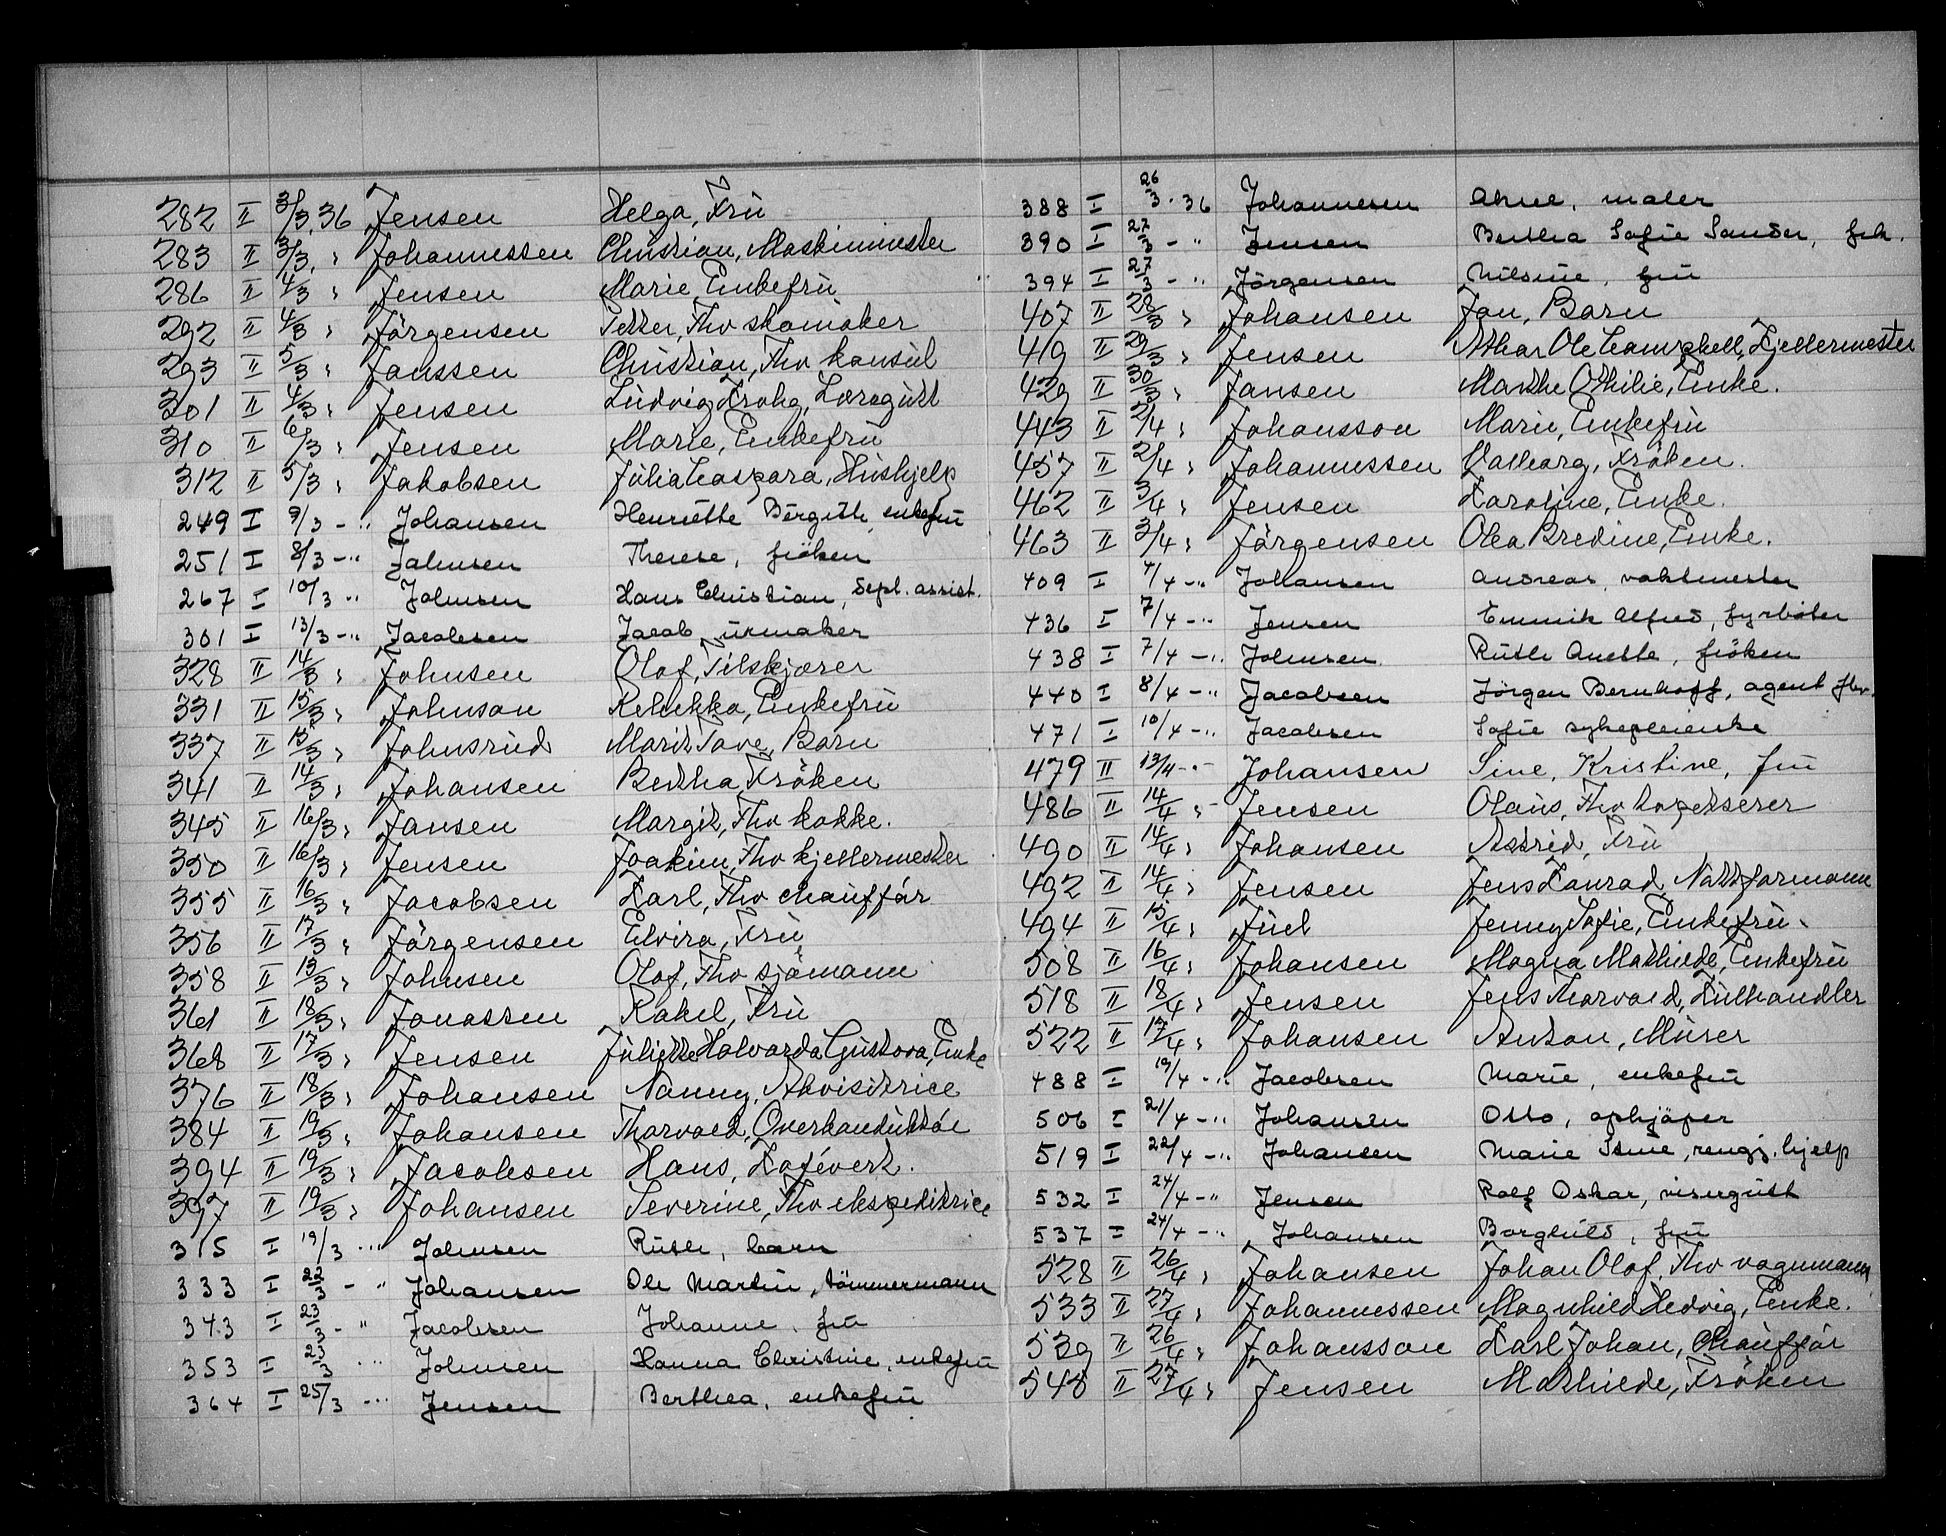 282 II 3/3.36 Jensen Helga, Fru
283 II 3/3. " Johannessen Christian, Maskinmester
286 II 4/3 " Jensen Marie Enkefru
292 II 4/3 " Jörgensen Petter, Fhv skomaker
293 II 5/3 " Janssen Christian, Fhv konsul
301 II 4/3 " Jensen Ludvig Krohg, Læregutt
310 II 6/3 " Jensen Marie, Enkefru
312 II 5/3 " Jakobsen Julia Caspara, Hushjelp
249 I 9/3 - " Johansen Henriette Birgith, enkefru
251 I 8/3 - " Johnsen Therese, fröken
267 I 10/3 " Johnsen Hans Christian, Sepl. assist.
301 I 13/3 - " Jacobsen Jacob, urmaker
328 II 14/3 " Johnsen Olaf, Tilskjærer
331 II 15/3 " Johnson Rebekka, Enkefru
337 II 15/3 " Johnsrud Marit Tove, Barn
341 II 14/3 " Johansen Bertha, Fröken
345 II 16/3 " Jansen Margit, Fhv kokke.
350 II 16/3 " Jensen Joakim, Fhv kjellermester
355 II 16/3 " Jacobsen Karl, Fhv chaufför
356 II 17/3 " Jörgensen Elvira, Fru
358 II 13/3 " Johnsen Olaf, Fhv sjömann
361 II 18/3 " Jonassen Rakel, Fru
368 II 17/3 " Jensen Juliette Halvarda Gustava, Enke
376 II 18/3 " Johansen Nanny, Revisitrice
384 II 19/3 " Johansen Thorvald, Overkonduktör
394 II 19/3 " Jacobsen Hans, Kafévert.
397 II 19/3 " Johansen Severine, Fhv ekspeditrice
315 I 19/3 - " Johnsen Ruth, barn
333 I 22/3 - " Johansen Ole Martin, tömmermann
343 I 23/3 - " Jacobsen Johanne, fru
353 I 23/3 - " Johnsen Hanna Christine, enkefru
364 I 25/3 - " Jensen Berthea, enkefru
388 I 26/3.36 Johannesen Arne, maler
390 I 27/3 - " Jensen Berthea Sofie Sander, frk.
394 I 27/3 - " Jörgensen Nilsine, fru
407 II 28/3 " Johansen Jan, Barn
419 II 29/3 " Jensen Athar Ole Campbell, Kjellermester
429 II 30/3 " Jansen Marthe Othilie, Enke.
443 II 2/4 " Johansson Marie, Enkefru
457 II 2/4 " Johannessen Valborg, Fröken.
462 II 3/4 " Jensen Karoline, Enke.
463 II 3/4 " Jörgensen Olea Bredine, Enke.
409 I 4/4 - " Johansen Andreas, vaktmester
436 I 7/4 - " Jensen Emmik Alfred, fyrböter
438 I 7/4 - " Johnsen Ruth Anette, fröken
440 I 8/4 - " Jacobsen Jörgen Bernhoff, agent fhv.
471 I 10/4 - " Jacobsen Sofie sykepleierske
479 II 13/4 - " Johansen Sine, Kristine, fru
486 II 14/4 " Jensen Olaus, Fhv tapetserer
490 II 14/4 " Johansen Astrid, Fru
492 II 14/4 " Jensen Jens Konrad, Nattformann
494 II 15/4 " Juel Jenny Sofie, Enkefru.
508 II 16/4 " Johansen Magna Mathilde, Enkefru
518 II 18/4 " Jensen Jens Thorvald, Kulhandler
522 II 17/4 " Johansen Anton, Murer
488 I 19/4 - " Jacobsen Marie, enkefru
506 I 21/4 - " Johansen Otto, opkjöper
519 I 22/4 - " Johansen Marie Stine, rengj. hjelp
532 I 24/4 - " Jensen Rolf Oskar, visergutt
537 I 24/4 - " Johansen Borghild, fru
528 II 26/4 " Johansen Johan Olaf, Fhv vognmann
533 II 27/4 " Johannessen Magnhild Hedvig, Enke.
539 II 26/4 " Johansson Karl Johan, Chaufför
548 II 27/4 " Jensen Mathilde, Fröken